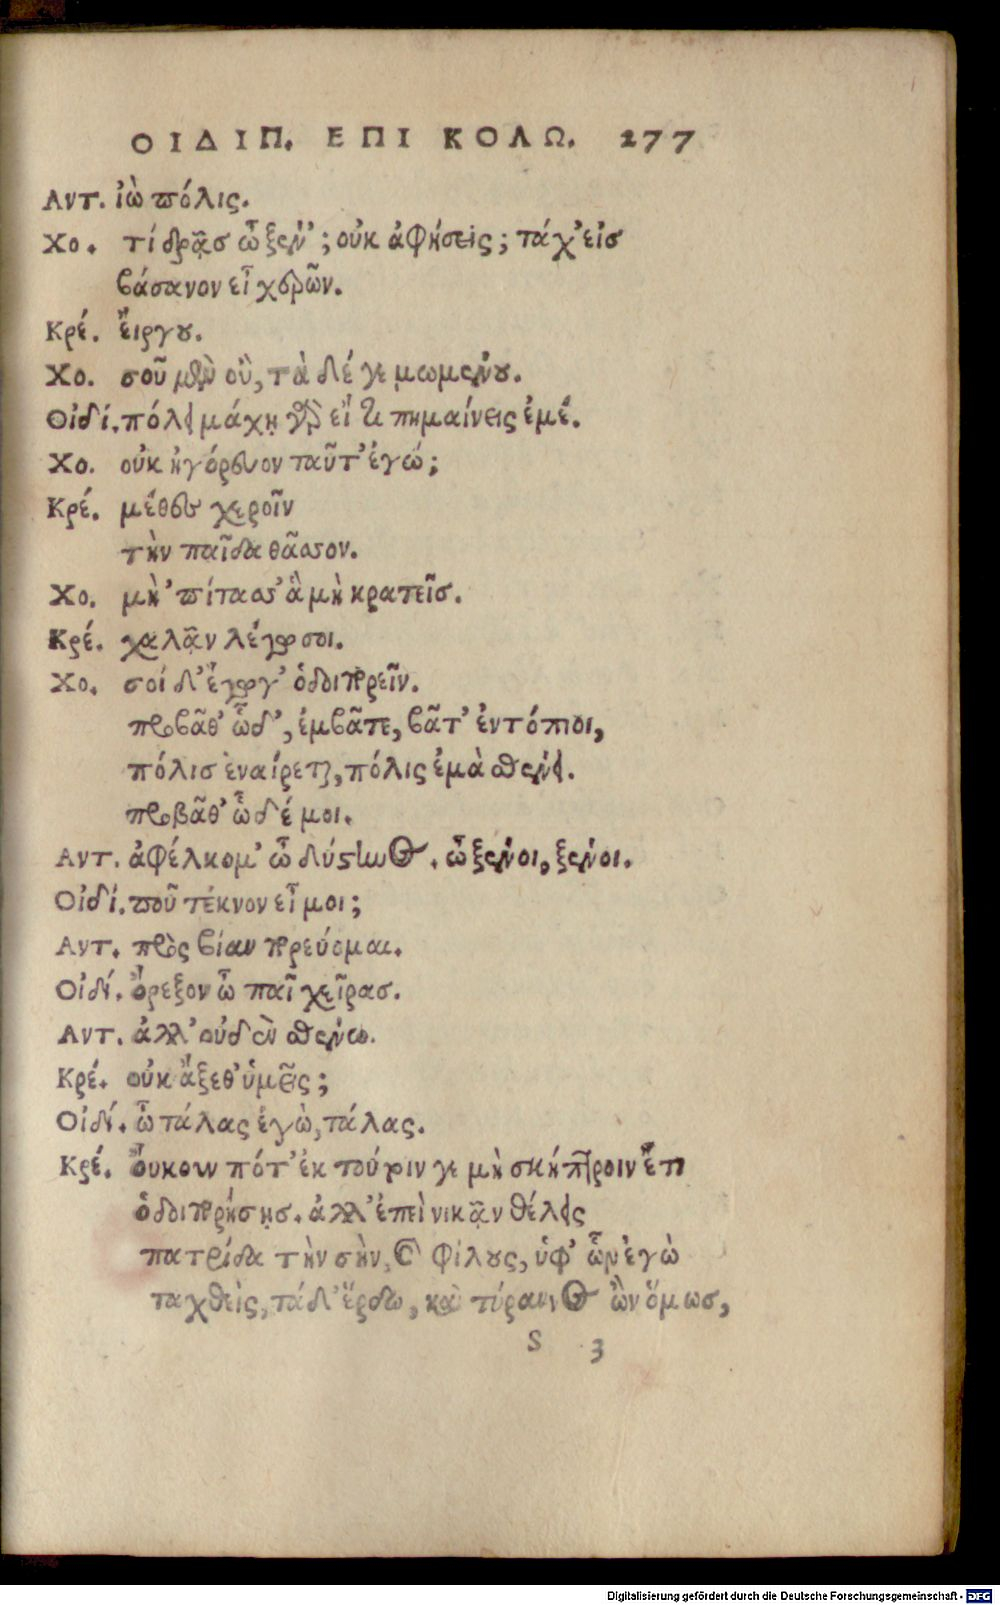 ΟΙΔΙΠ. ΕΠΙ ΚΟΛΩ. 277
Αντ. ἰὼ πόλις.
Χο. τί δρᾷσ ὦ ξέν’; οὐκ ἀφήσεις; τάχ’εἰσ
βάσανον εἶ χερῶν.
Κρέ. εἴργου.
Χο. σοῦ μὲν οὒ, τὰ δέ γε μωμένου.
Οἰδί. πόλει μάχῃ γὰρ εἴ τι πημαίνεις ἐμέ.
Χο. οὐκ ἠγόρευον ταῦτ’ἐγώ;
Κρέ. μέθες χεροῖν
τὴν παῖδα θᾶσσον.
Χο. μὴ’πίτασσ’ἃ μὴ κρατεῖσ.
Κρέ. χαλᾷν λέγω σοι.
Χο. σοί δ’ἔγωγ’ ὁδοιπορεῖν.
προβᾶθ’ ὧδ’, ἐμβᾶτε, βᾶτ’ ἐντόπιοι,
πόλισ ἐναίρεται, πόλις ἐμὰ σθένει.
προβᾶθ’ ὧδέ μοι.
Αντ. ἀφέλκομ’ ὦ δύστηνος. ὦ ξένοι, ξένοι.
Οἰδί. ποῦ τέκνον εἶ μοι;
Αντ. πρὸς βίαν πορεύομαι.
Οἰδί. ὄρεξον ὦ παῖ χεῖρασ.
Αντ. ἀλλ’ οὐδὲν σθένω.
Κρέ. οὐκ ἄξεθ’ὑμεῖς;
Οἰδί. ὦ τάλας ἐγὼ, τάλας.
Κρέ. ὄυκουν πότ’ἐκ τούτοιν γε μὴ σκήπτροιν ἔτι
ὁδοιπορήσῃσ. ἀλλ’ἐπεὶ νικᾷν θέλεις
πατρίδα τὴν σὴν, καὶ φίλους, ὑφ’ ὧν ἐγὼ
ταχθεὶς, τάδ’ἔρδω, καὶ τύραννος ὢν ὅμωσ,
S 3
Digitalisierung gefördert durch die Deutsche Forschungsgemeinschaft · DFG